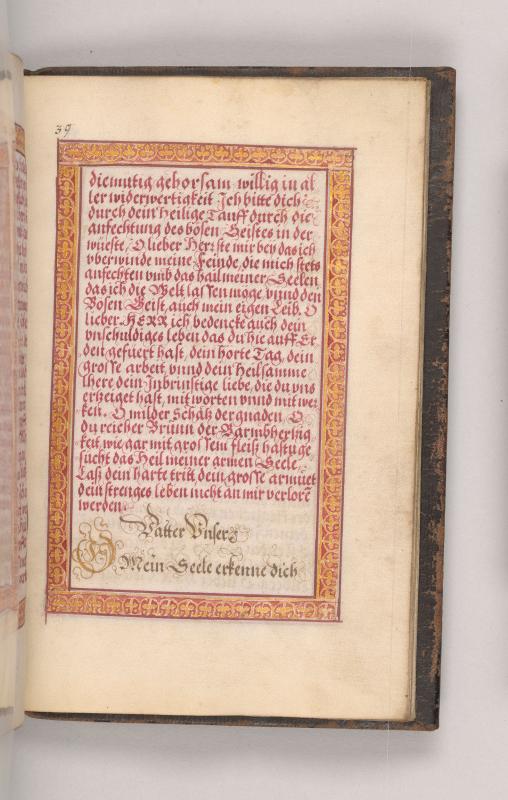 39
diemutig gehorsam willig in al
ler widerwertigkeit Ich bitte dich
durch dein heilige Tauff durch die
anfechtung des bösen Geistes in der
wüeste, O lieber Herr ste mir bey das ich
vberwinde meine Feinde, die mich stets
anfechten vmb das hail meiner Seelen
das ich die Welt lassen möge vnnd den
Bösen Geist, auch mein eigen Leib. O
lieber HERR ich bedencke auch dein
vnschuldiges leben das du hie auff Er
den gefüert hast, dein horte Tag, dein
grosse arbeit vnnd dein heilsamme
lhere dein Inbrinstige liebe, die du vns
erzeiget hast, mit worten vnnd mit wer
ken. O milder Schatz der gnaden, O
du reicher Brunn der Barmbhertzig
keit, wie gar mit grossem fleiß hastu ge
sucht das Heil meiner armen Seele
Laß dein harte tritt dein grosse armuet
dein strenges leben nicht an mir verlorē
werden.
Vatter Vnser
O Mein Seele erkenne dich